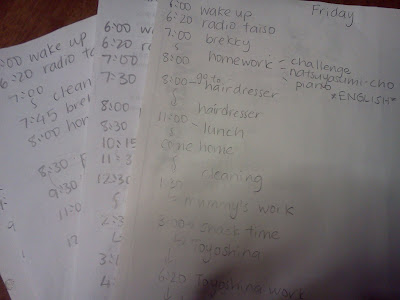 Friday
6:00 wake up
6:20 radio taiso
7:00 brekky
8:00 homework - challenge
- natsuyasumi-cho
- piano
*ENGLISH*
8:00 → go to hairdresser
hairdresser
11:00 lunch
come home
cleaning
1:30
mummy's work
3:00 snack time
Toyoshina
6:20 Toyoshina work
6:00 wake
6:20 radio
7:00
7:30
8:00
8:30
10:15
11:3
12:30
2:3
3:
4:
:00 wake up
6:20 radio tai
7:00 clean
7:45 brek
8:00 hom
8:30
9:30
11:0